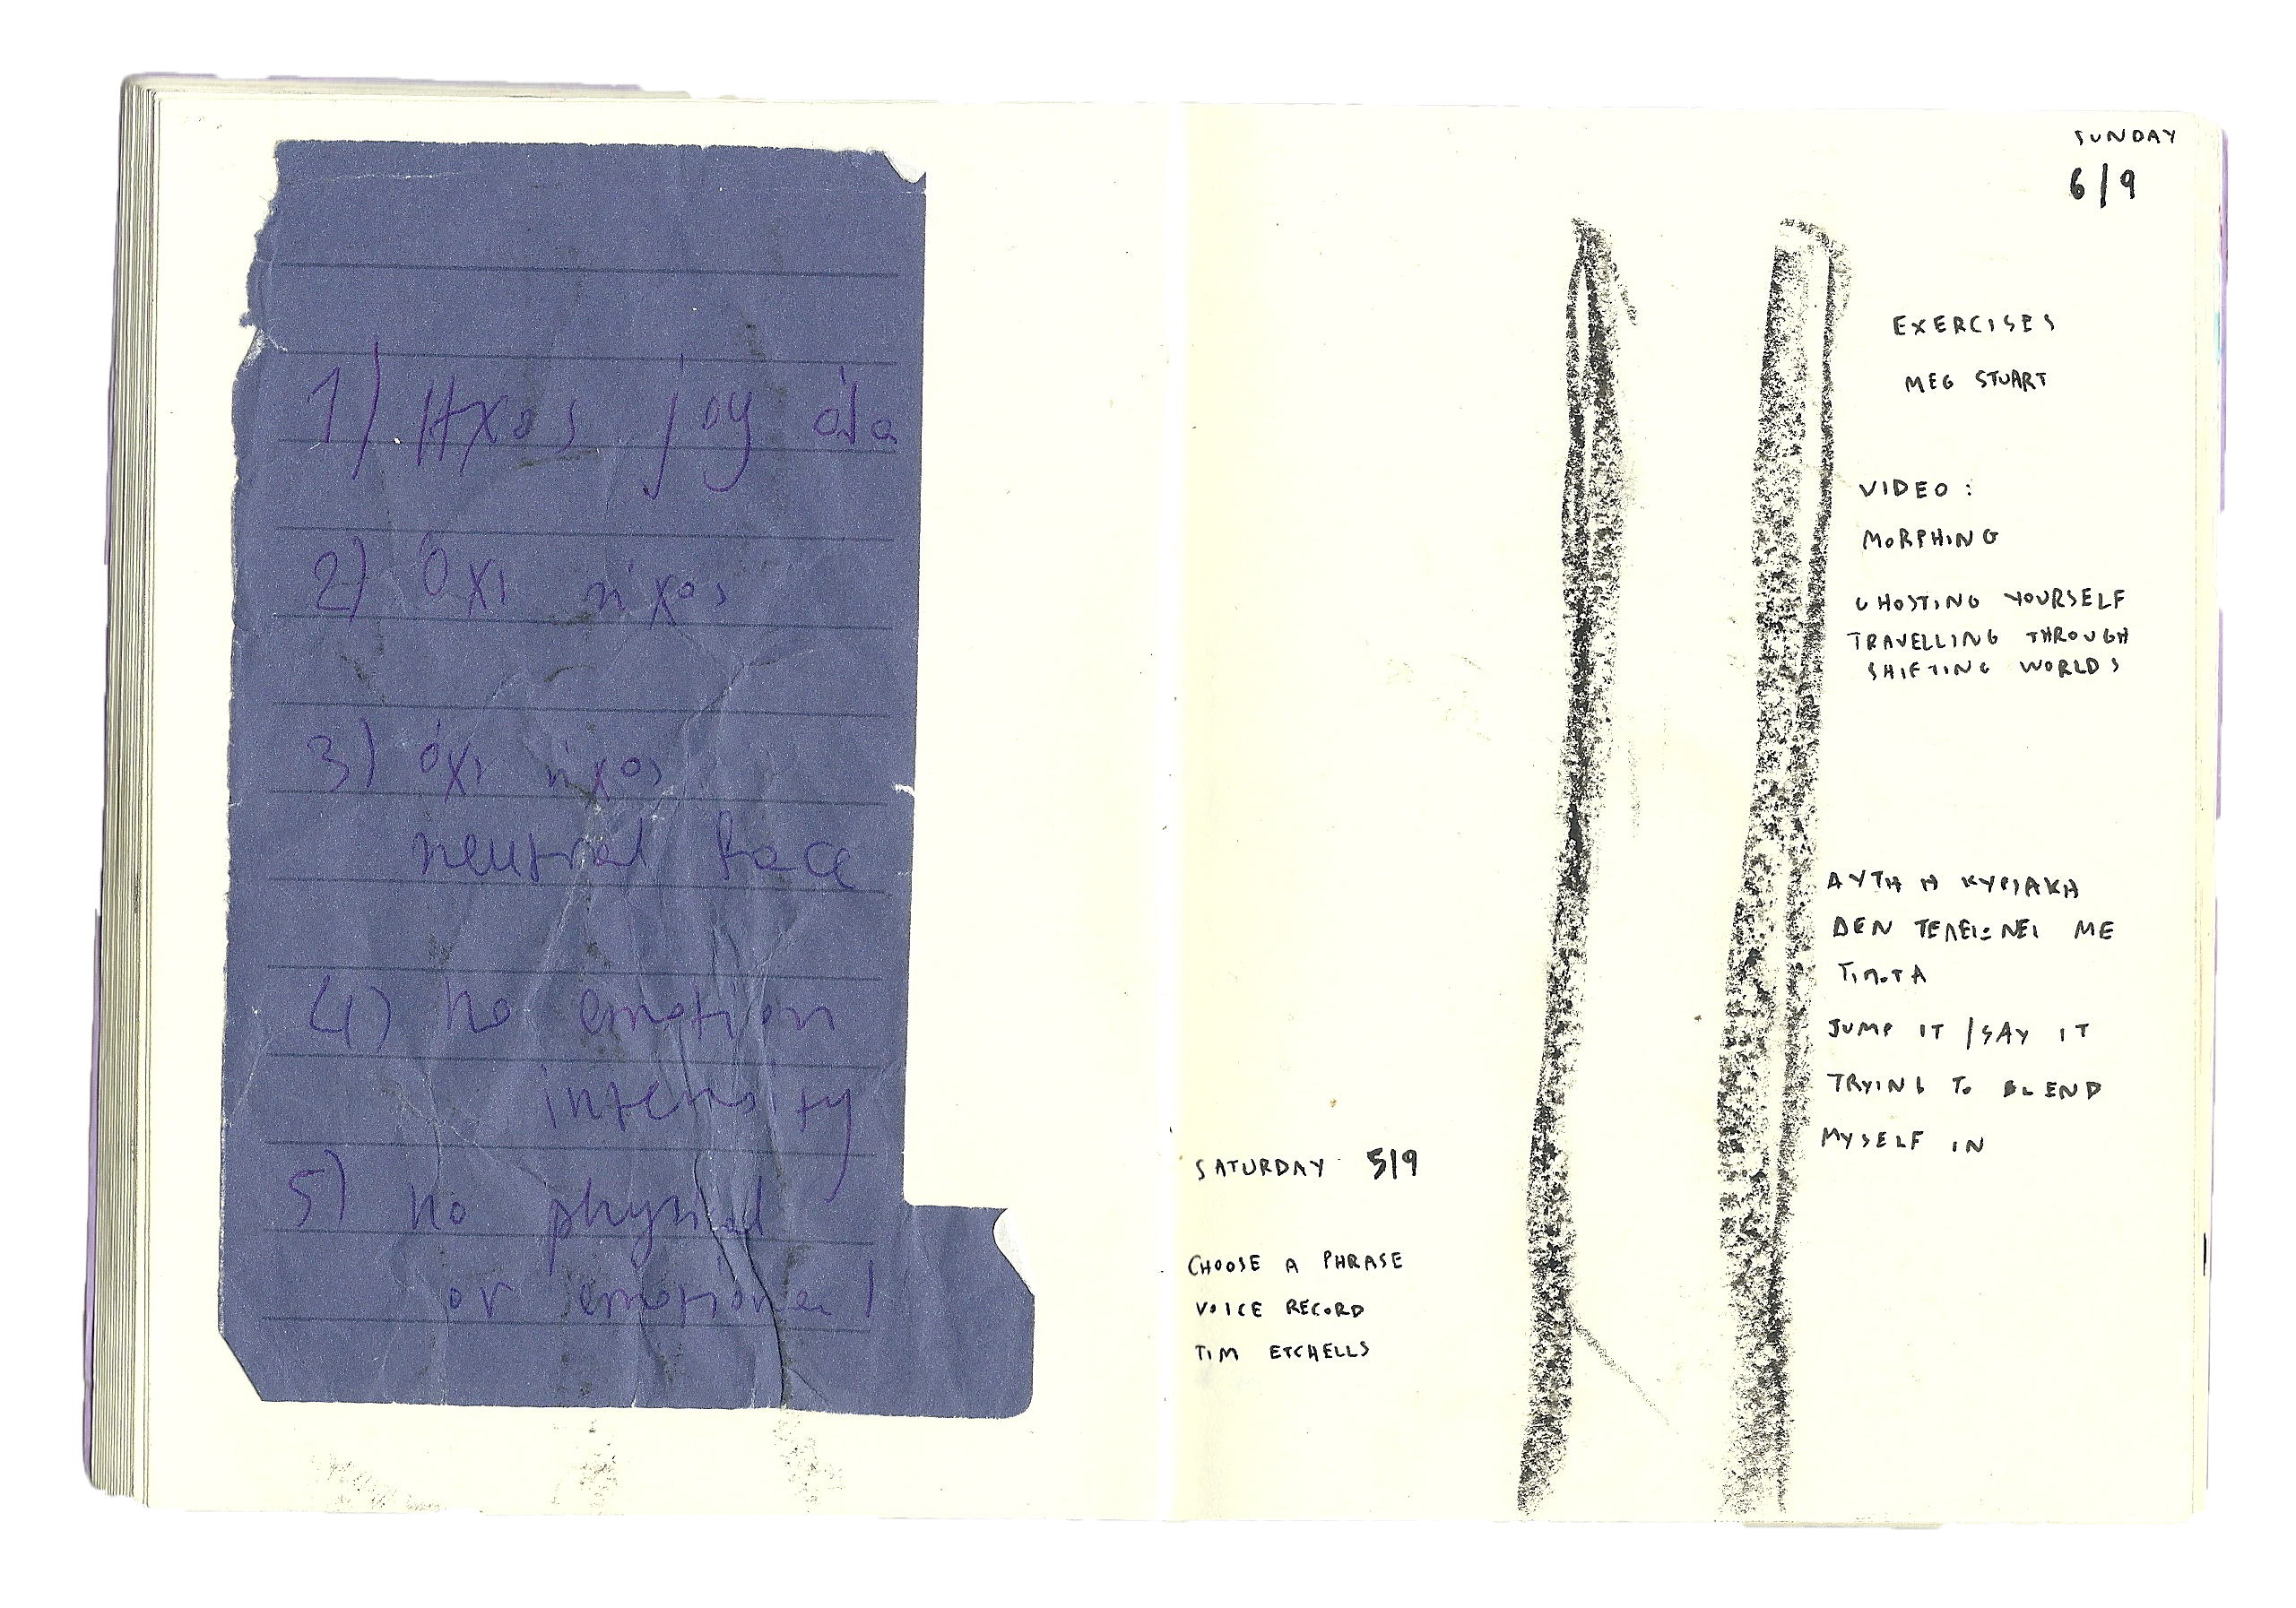 1) Ηχος joy όλα
2) Όχι ήχος
3) όχι ήχος
neutral face
4) no emotion
intensity
5) no physical
or emotional
SATURDAY 5/9
CHOOSE A PHRASE
VOICE RECORD
TIM ETCHELLS
SUNDAY
6/9
EXERCISES
MEG STUART
VIDEO:
MORPHING
GHOSTING YOURSELF
TRAVELLING THROUGH
SHIFTING WORLDS
ΑΥΤΗ Η ΚΥΡΙΑΚΗ
ΔΕΝ ΤΕΛΕΙΩΝΕΙ ΜΕ
ΤΙΠΟΤΑ
JUMP IT / SAY IT
TRYING TO BLEND
MYSELF IN